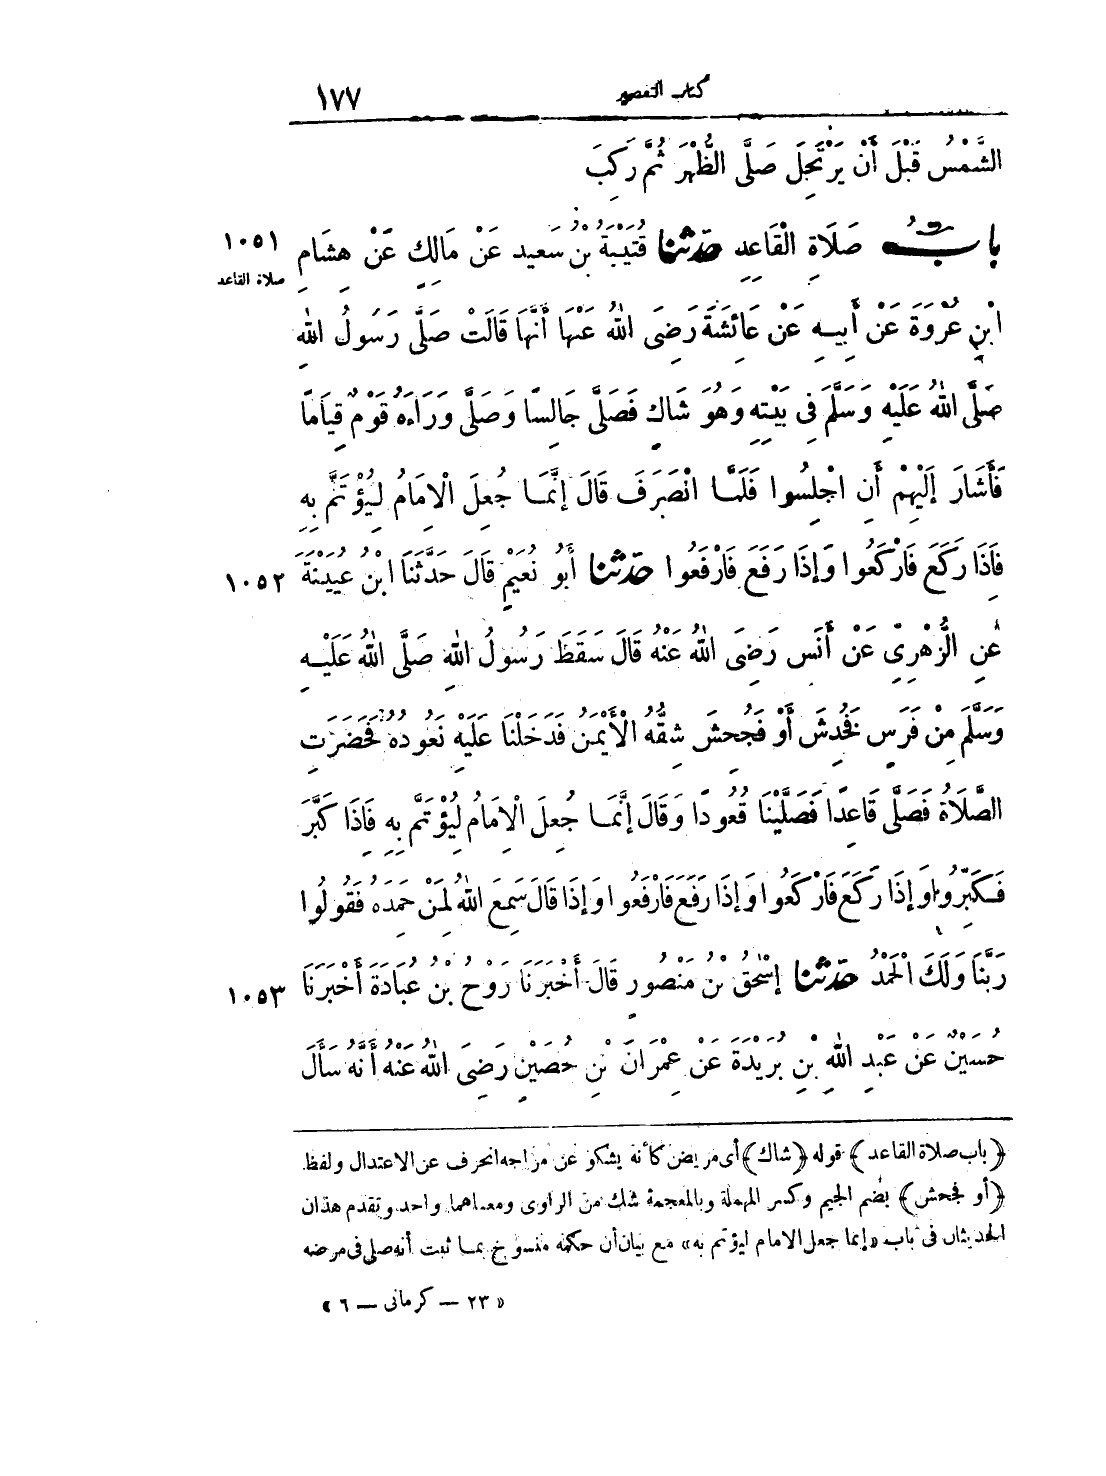 كتاب التقصير ١٧٧
الشَّمْسُ قَبْلَ أَنْ يَرْتَحِلَ صَلَّى الظُّهْرَ ثُمَّ رَكِبَ
بابُ صَلَاةِ الْقَاعِدِ حدثنا قُتَيْبَةُ بْنُ سَعِيدٍ عَنْ مَالِكٍ عَنْ هِشَامِ ١٠٥١
صلاة القاعد
ابْنِ عُرْوَةَ عَنْ أَبِيهِ عَنْ عَائِشَةَ رَضِيَ اللهُ عَنْهَا أَنَّهَا قَالَتْ صَلَّى رَسُولُ اللهِ
صَلَّى اللهُ عَلَيْهِ وَسَلَّمَ فِي بَيْتِهِ وَهُوَ شَاكٍ فَصَلَّى جَالِسًا وَصَلَّى وَرَاءَهُ قَوْمٌ قِيَامًا
فَأَشَارَ إِلَيْهِمْ أَنِ اجْلِسُوا فَلَمَّا انْصَرَفَ قَالَ إِنَّمَا جُعِلَ الْإِمَامُ لِيُؤْتَمَّ بِهِ
فَإِذَا رَكَعَ فَارْكَعُوا وَإِذَا رَفَعَ فَارْفَعُوا حدثنا أَبُو نُعَيْمٍ قَالَ حَدَّثَنَا ابْنُ عُيَيْنَةَ ١٠٥٢
عَنِ الزُّهْرِيِّ عَنْ أَنَسٍ رَضِيَ اللهُ عَنْهُ قَالَ سَقَطَ رَسُولُ اللهِ صَلَّى اللهُ عَلَيْهِ
وَسَلَّمَ مِنْ فَرَسٍ فَخُدِشَ أَوْ فَجُحِشَ شِقُّهُ الْأَيْمَنُ فَدَخَلْنَا عَلَيْهِ نَعُودُهُ فَحَضَرَتِ
الصَّلَاةُ فَصَلَّى قَاعِدًا فَصَلَّيْنَا قُعُودًا وَقَالَ إِنَّمَا جُعِلَ الْإِمَامُ لِيُؤْتَمَّ بِهِ فَإِذَا كَبَّرَ
فَكَبِّرُوا وَإِذَا رَكَعَ فَارْكَعُوا وَإِذَا رَفَعَ فَارْفَعُوا وَإِذَا قَالَ سَمِعَ اللهُ لِمَنْ حَمِدَهُ فَقُولُوا
رَبَّنَا وَلَكَ الْحَمْدُ حدثنا إِسْحَقُ بْنُ مَنْصُورٍ قَالَ أَخْبَرَنَا رَوْحُ بْنُ عُبَادَةَ أَخْبَرَنَا ١٠٥٣
حُسَيْنٌ عَنْ عَبْدِ اللهِ بْنِ بُرَيْدَةَ عَنْ عِمْرَانَ بْنِ حُصَيْنٍ رَضِيَ اللهُ عَنْهُ أَنَّهُ سَأَلَ
﴿باب صلاة القاعد﴾ قوله ﴿شاك﴾ أى مريض كأنه يشكو عن مزاجه انحرف عن الاعتدال ولفظ
﴿أو فجحش﴾ بضم الجيم وكسر المهملة وبالمعجمة شك من الراوى ومعناهما واحد وتقدم هذان
الحديثان فى باب «إنما جعل الامام ليؤتم به» مع بيان أن حكمه منسوخ بما ثبت أنه صلى فى مرضه
«٢٣ — كرمانى — ٦»